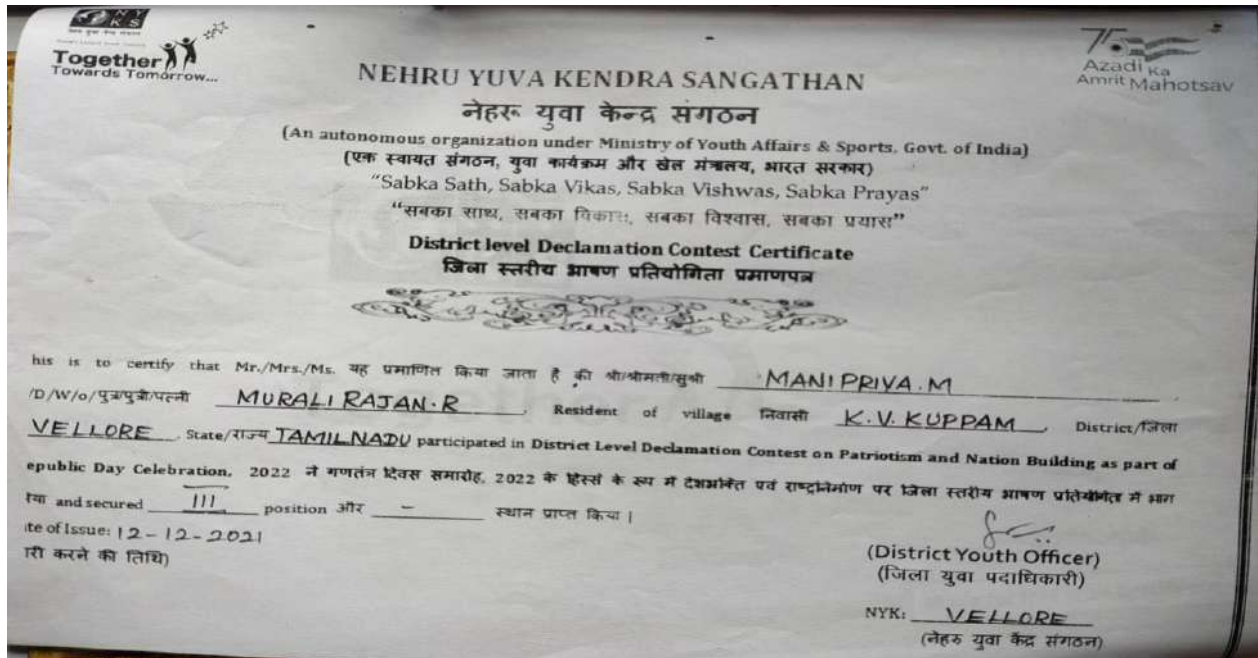 NYKS
Together
Towards Tomorrow...
75
Azadi Ka
Amrit Mahotsav
NEHRU YUVA KENDRA SANGATHAN
नेहरू युवा केन्द्र संगठन
(An autonomous organization under Ministry of Youth Affairs & Sports, Govt. of India)
(एक स्वायत संगठन, युवा कार्यक्रम और खेल मंत्रालय, भारत सरकार)
"Sabka Sath, Sabka Vikas, Sabka Vishwas, Sabka Prayas"
"सबका साथ, सबका विकास, सबका विश्वास, सबका प्रयास"
District level Declamation Contest Certificate
जिला स्तरीय भाषण प्रतियोगिता प्रमाणपत्र
his is to certify that Mr./Mrs./Ms. यह प्रमाणित किया जाता है की श्री/श्रीमती/सुश्री MANIPRIYA.M
/D/W/o/पुत्र/पुत्री/पत्नी MURALI RAJAN.R, Resident of village निवासी K.V. KUPPAM, District/जिला
VELLORE, State/राज्य TAMILNADU participated in District Level Declamation Contest on Patriotism and Nation Building as part of
epublic Day Celebration, 2022 ने गणतंत्र दिवस समारोह, 2022 के हिस्से के रूप में देशभक्ति एवं राष्ट्रनिर्माण पर जिला स्तरीय भाषण प्रतियोगिता में भाग
and secured III position और - स्थान प्राप्त किया |
te of Issue: 12-12-2021
री करने की तिथि)
(District Youth Officer)
(जिला युवा पदाधिकारी)
NYK: VELLORE
(नेहरु युवा केंद्र संगठन)